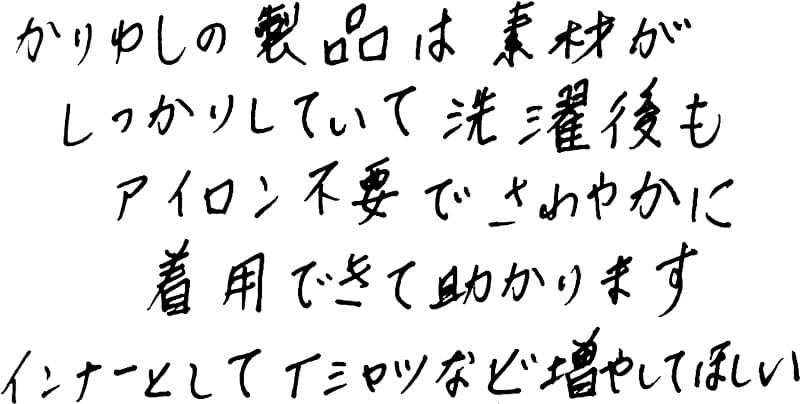 かりゆしの製品は素材が
しっかりしていて洗濯後も
アイロン不要でさわやかに
着用できて助かります
インナーとしてTシャツなど増やしてほしい